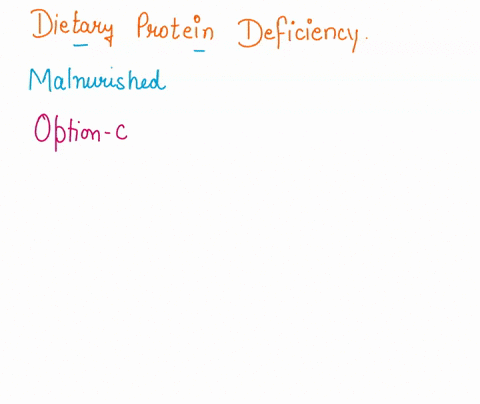 Dietary Protein Deficiency.
Malnurished
Option-c